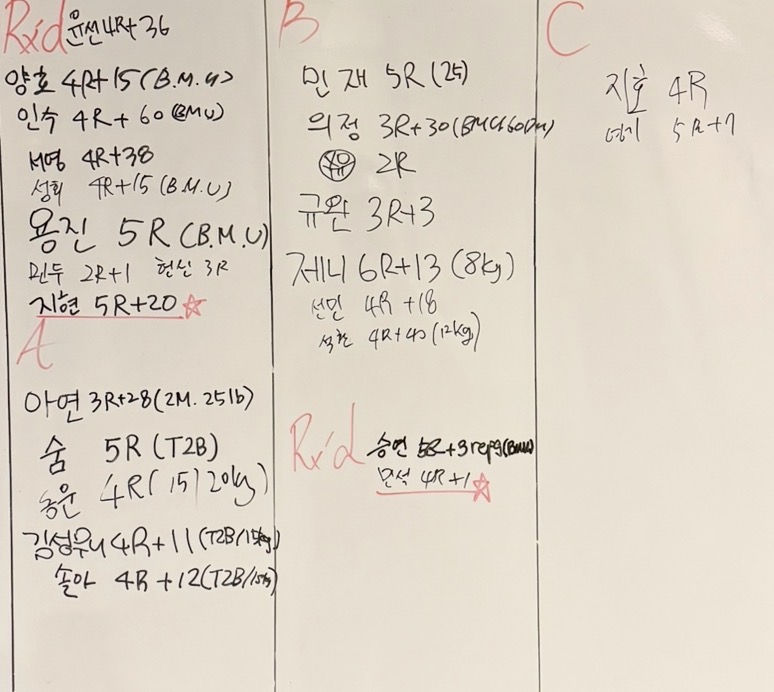 Rx'd 윤선 4R+36
양호 4R+15 (B.M.U)
인수 4R+60 (BMU)
서영 4R+38
성희 4R+15 (B.M.U)
용진 5R (B.M.U)
민두 2R+1 현신 3R
지현 5R+20 ☆
A
아연 3R+28 (2M. 25lb)
숨 5R (T2B)
4R( 15) 20kg)
김성우니 4R+11 (T2B/15kg)
솔아 4R+12 (T2B/15kg)
B
민재 5R (25)
의정 3R+30
유 2R
규완 3R+3
제니 6R+13 (8kg)
선민 4R +18
석환 4R+40 (12kg)
Rx'd 승연 5R+3reps (BMU)
민석 4R+1 ☆
C
지호 4R
5R+7